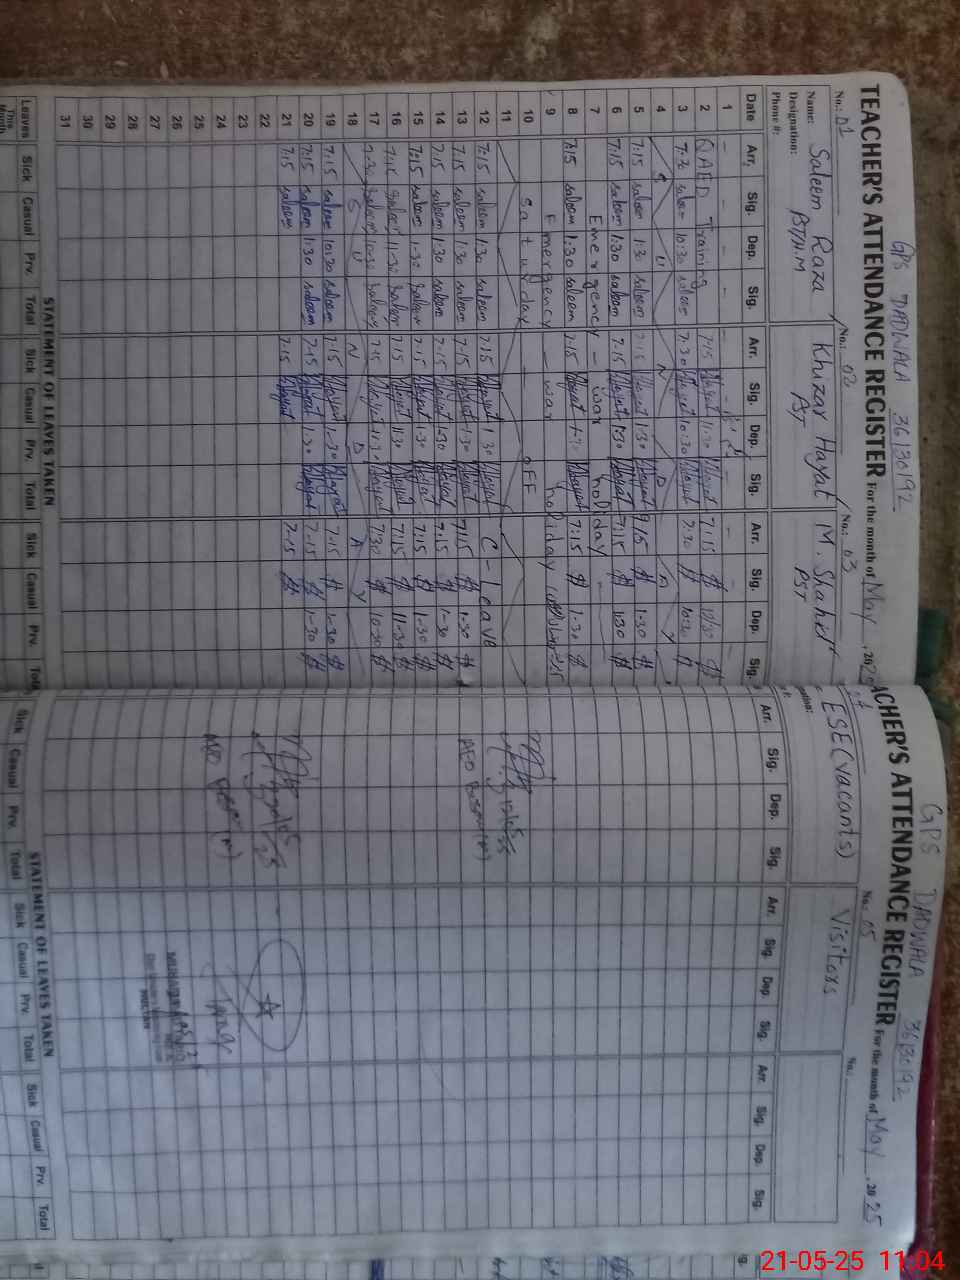 GPS DADWALA 36130192
TEACHER'S ATTENDANCE REGISTER For the month of May, 20
No.: 01 No.: 02 No.: 03
Name: Saleem Raza Khizar Hayat M. Shahid
Designation: PST/H.M PST PST
Phone #:
Date Arr. Sig. Dep. Sig. Arr. Sig. Dep. Sig. Arr. Sig. Dep. Sig.
1 - - - -
2 QAED Training 7:15 Hayat 11:30 Hayat 7:15
3 7:30 saleem 10:30 saleem 7:30 Hayat 10:30 Hayat 7:30 10:30
4 S U N D A Y
5 7:15 saleem 1:30 saleem 7:15 Hayat 1:30 Hayat 7:15 1:30
6 7:15 saleem 1:30 saleem 7:15 Hayat 1:30 Hayat 7:15 1:30
7 Emergency - war holiday
8 7:15 saleem 1:30 saleem 7:15 Hayat 1:30 Hayat 7:15 1:30
9 Emergency - war holiday
10 Saturday - OFF
11
12 7:15 saleem 1:30 saleem 7:15 Hayat 1:30 Hayat C - leave
13 7:15 saleem 1:30 saleem 7:15 Hayat 1:30 Hayat 7:15 1:30
14 7:15 saleem 1:30 saleem 7:15 Hayat 1:30 Hayat 7:15 1-30
15 7:15 saleem 1:30 saleem 7:15 Hayat 1:30 Hayat 7:15 1-30
16 7:15 saleem 11:30 saleem 7:15 Hayat 11:30 Hayat 7:15 11-30
17 7:30 saleem 10:30 saleem 7:15 Hayat 11:30 Hayat 7:30 10:30
18 S U N D A Y
19 7:15 saleem 10:30 saleem 7:15 Hayat 1:30 Hayat 7:15 1:30
20 7:15 saleem 1:30 saleem 7:15 Hayat 1:30 Hayat 7:15 1-30
21 7:15 saleem 7:15 Hayat 7:15
22
23
24
25
26
27
28
29
30
31
STATEMENT OF LEAVES TAKEN
Leaves Sick Casual Prv. Total Sick Casual Prv. Total Sick Casual Prv. Total
This Month
GPS DADWALA 36130192
TEACHER'S ATTENDANCE REGISTER For the month of May, 2025
No.: 05 No.:
ESE (Vacants) Visitors
Arr. Sig. Dep. Sig. Arr. Sig. Dep. Sig. Arr. Sig. Dep. Sig.
AEO
MULTAN
STATEMENT OF LEAVES TAKEN
Sick Casual Prv. Total Sick Casual Prv. Total Sick Casual Prv. Total
21-05-25 11:04